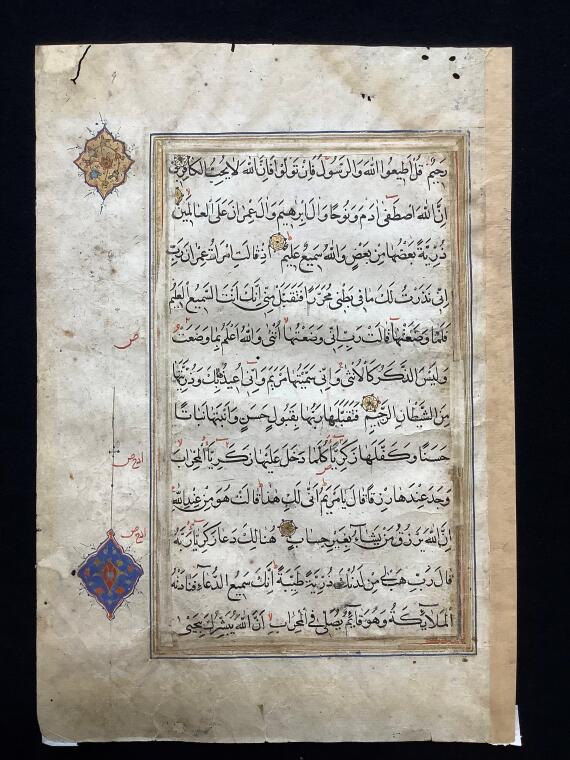 رَحِيمٌ قُلْ أَطِيعُوا اللّٰهَ وَالرَّسُولَ فَإِنْ تَوَلَّوْا فَإِنَّ اللّٰهَ لَا يُحِبُّ الْكَافِرِينَ
إِنَّ اللّٰهَ اصْطَفَىٰ آدَمَ وَنُوحًا وَآلَ إِبْرَاهِيمَ وَآلَ عِمْرَانَ عَلَى الْعَالَمِينَ
ذُرِّيَّةً بَعْضُهَا مِنْ بَعْضٍ وَاللّٰهُ سَمِيعٌ عَلِيمٌ إِذْ قَالَتِ امْرَأَتُ عِمْرَانَ رَبِّ
إِنِّي نَذَرْتُ لَكَ مَا فِي بَطْنِي مُحَرَّرًا فَتَقَبَّلْ مِنِّي إِنَّكَ أَنْتَ السَّمِيعُ الْعَلِيمُ
فَلَمَّا وَضَعَتْهَا قَالَتْ رَبِّ إِنِّي وَضَعْتُهَا أُنْثَىٰ وَاللّٰهُ أَعْلَمُ بِمَا وَضَعَتْ
ص
وَلَيْسَ الذَّكَرُ كَالْأُنْثَىٰ وَإِنِّي سَمَّيْتُهَا مَرْيَمَ وَإِنِّي أُعِيذُهَا بِكَ وَذُرِّيَّتَهَا
مِنَ الشَّيْطَانِ الرَّجِيمِ فَتَقَبَّلَهَا رَبُّهَا بِقَبُولٍ حَسَنٍ وَأَنْبَتَهَا نَبَاتًا
حَسَنًا وَكَفَّلَهَا زَكَرِيَّا كُلَّمَا دَخَلَ عَلَيْهَا زَكَرِيَّا الْمِحْرَابَ
وَجَدَ عِنْدَهَا رِزْقًا قَالَ يَا مَرْيَمُ أَنَّىٰ لَكِ هٰذَا قَالَتْ هُوَ مِنْ عِنْدِ اللّٰهِ
إِنَّ اللّٰهَ يَرْزُقُ مَنْ يَشَاءُ بِغَيْرِ حِسَابٍ هُنَالِكَ دَعَا زَكَرِيَّا رَبَّهُ
قَالَ رَبِّ هَبْ لِي مِنْ لَدُنْكَ ذُرِّيَّةً طَيِّبَةً إِنَّكَ سَمِيعُ الدُّعَاءِ فَنَادَتْهُ
الْمَلَائِكَةُ وَهُوَ قَائِمٌ يُصَلِّي فِي الْمِحْرَابِ أَنَّ اللّٰهَ يُبَشِّرُكَ بِيَحْيَىٰ